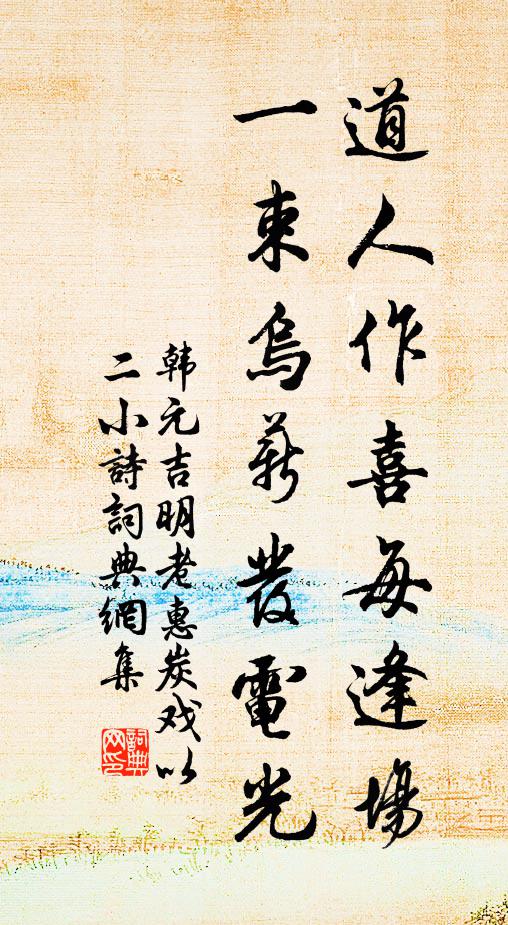 道人作喜每逢場
一束烏薪發電光
韩元吉明老惠炭戏以
二小詩詞典網集
詞典网印